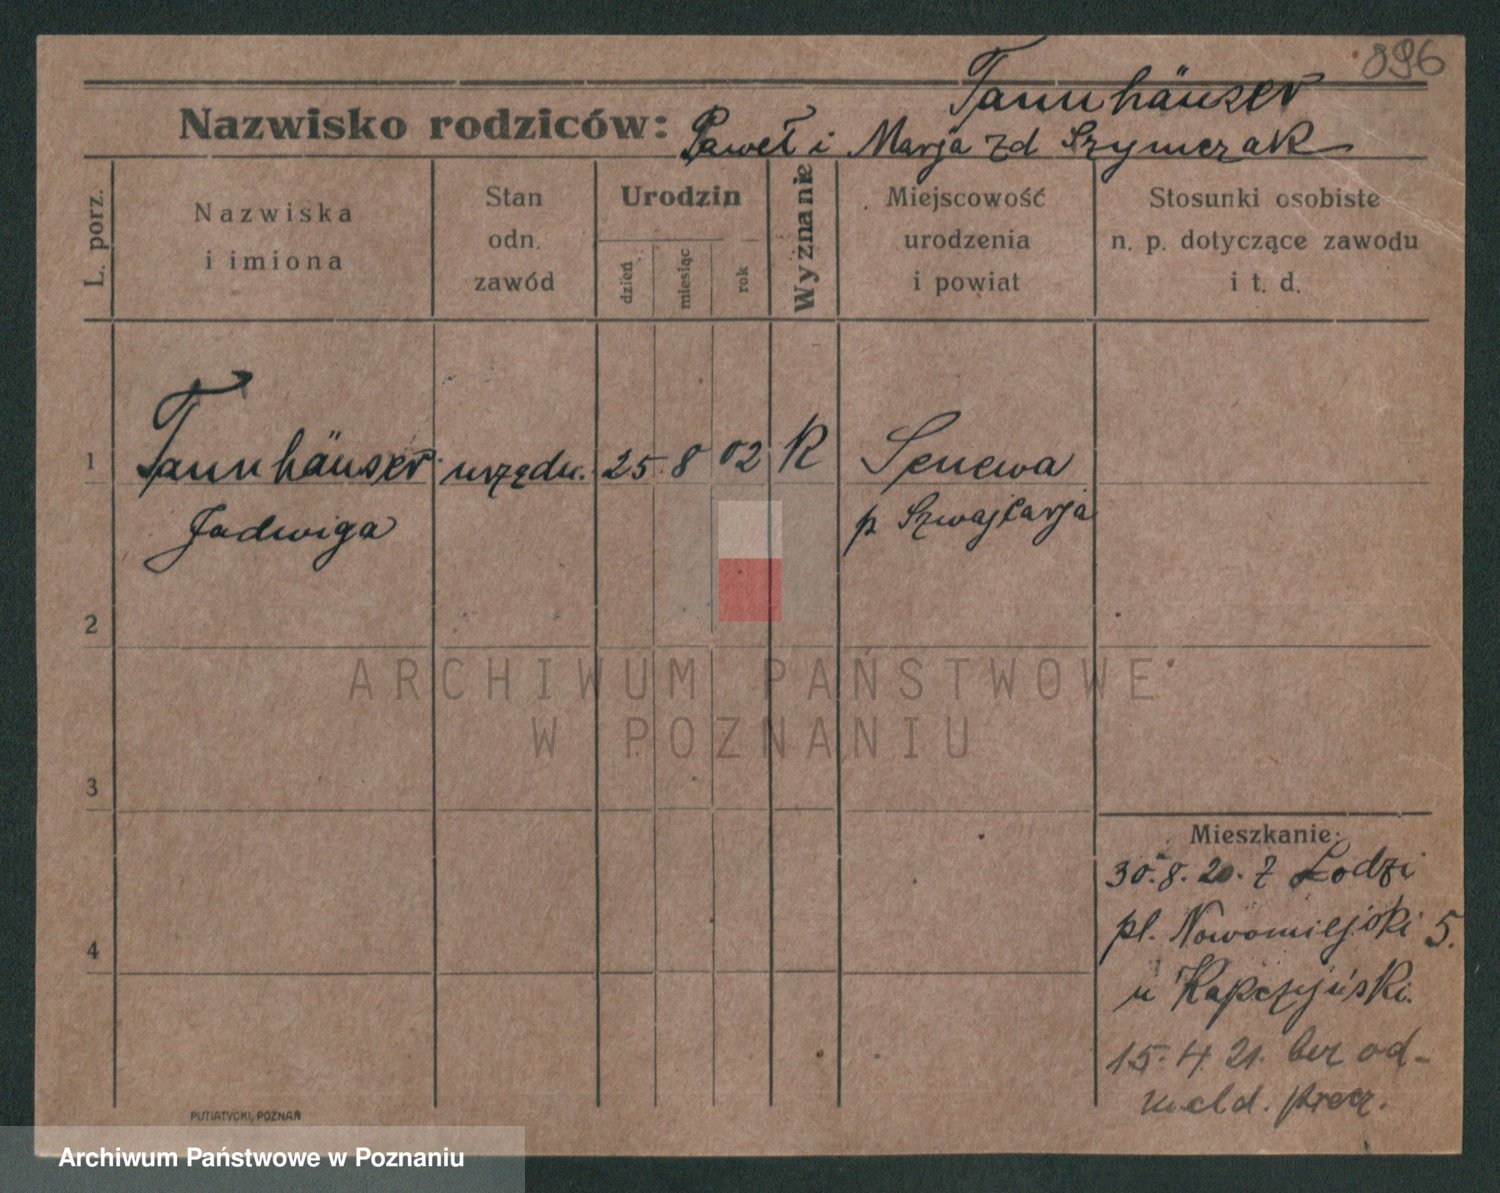 096
Tannhäuser
Nazwisko rodziców: Paweł i Marja zd Szymczak
L. porz.
Nazwiska
i imiona
Stan
odn.
zawód
Urodzin
dzień
miesiąc
rok
Wyznanie
Miejscowość
urodzenia
i powiat
Stosunki osobiste
n. p. dotyczące zawodu
i t. d.
1 Tannhäuser urzędn. 25. 8 02 K Genewa
Jadwiga p Szwajcarja
2
3
4
Mieszkanie:
30.8.20. z Łodzi
pl. Nowomiejski 5.
u Kapczyński.
15.4.21. bez od-
meld. precz.
PUTIATYCKI, POZNAŃ
ARCHIWUM PAŃSTWOWE
W POZNANIU
Archiwum Państwowe w Poznaniu